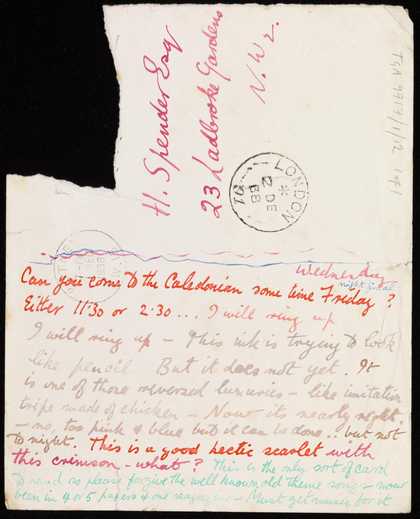 H. Spender Esq
23 Ladbroke Gardens
N.W2.
TGA 9717/1/12 1 of 1
LONDON
12 DE
88
Wednesday
night final
Can you come to the Caledonian some time Friday ?
Either 11.30 or 2.30 ... I will ring up
I will ring up – This ink is trying to look
like pencil But it does not yet. It
is one of those reversed luxuries – like imitation
tripe made of chicken – Now its nearly right
– no, too pink & blue but it can be done .. but not
to night. This is a good hectic scarlet with
this crimson – what ? This is the only sort of card
to send so please forgive the well known old theme song – now
been in 4 or 5 papers & one magazine – Must get money for it